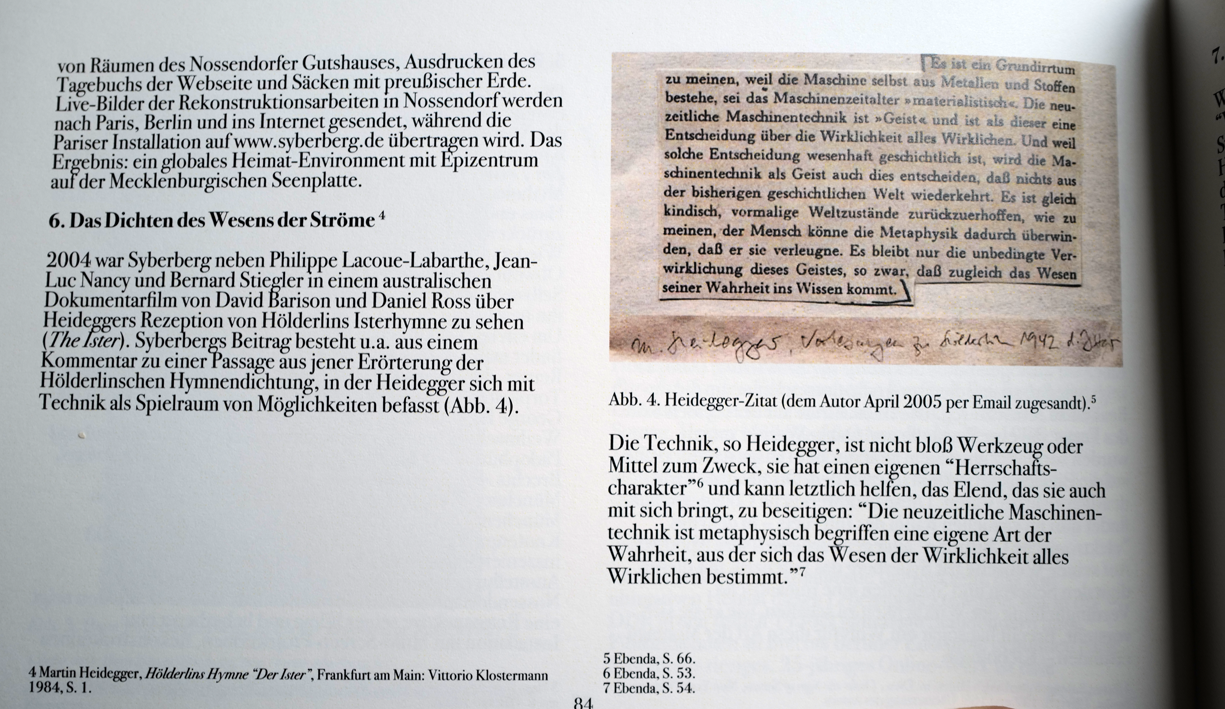 von Räumen des Nossendorfer Gutshauses, Ausdrucken des
Tagebuchs der Webseite und Säcken mit preußischer Erde.
Live-Bilder der Rekonstruktionsarbeiten in Nossendorf werden
nach Paris, Berlin und ins Internet gesendet, während die
Pariser Installation auf www.syberberg.de übertragen wird. Das
Ergebnis: ein globales Heimat-Environment mit Epizentrum
auf der Mecklenburgischen Seenplatte.
6. Das Dichten des Wesens der Ströme 4
2004 war Syberberg neben Philippe Lacoue-Labarthe, Jean-
Luc Nancy und Bernard Stiegler in einem australischen
Dokumentarfilm von David Barison und Daniel Ross über
Heideggers Rezeption von Hölderlins Isterhymne zu sehen
(The Ister). Syberbergs Beitrag besteht u.a. aus einem
Kommentar zu einer Passage aus jener Erörterung der
Hölderlinschen Hymnendichtung, in der Heidegger sich mit
Technik als Spielraum von Möglichkeiten befasst (Abb. 4).
4 Martin Heidegger, Hölderlins Hymne "Der Ister", Frankfurt am Main: Vittorio Klostermann
1984, S. 1.
Es ist ein Grundirrtum
zu meinen, weil die Maschine selbst aus Metallen und Stoffen
bestehe, sei das Maschinenzeitalter »materialistisch«. Die neu-
zeitliche Maschinentechnik ist »Geist« und ist als dieser eine
Entscheidung über die Wirklichkeit alles Wirklichen. Und weil
solche Entscheidung wesenhaft geschichtlich ist, wird die Ma-
schinentechnik als Geist auch dies entscheiden, daß nichts aus
der bisherigen geschichtlichen Welt wiederkehrt. Es ist gleich
kindisch, vormalige Weltzustände zurückzuerhoffen, wie zu
meinen, der Mensch könne die Metaphysik dadurch überwin-
den, daß er sie verleugne. Es bleibt nur die unbedingte Ver-
wirklichung dieses Geistes, so zwar, daß zugleich das Wesen
seiner Wahrheit ins Wissen kommt.
M. Heidegger, Vorlesungen zu Hölderlin 1942
Abb. 4. Heidegger-Zitat (dem Autor April 2005 per Email zugesandt).5
Die Technik, so Heidegger, ist nicht bloß Werkzeug oder
Mittel zum Zweck, sie hat einen eigenen “Herrschafts-
charakter”6 und kann letztlich helfen, das Elend, das sie auch
mit sich bringt, zu beseitigen: “Die neuzeitliche Maschinen-
technik ist metaphysisch begriffen eine eigene Art der
Wahrheit, aus der sich das Wesen der Wirklichkeit alles
Wirklichen bestimmt.”7
5 Ebenda, S. 66.
6 Ebenda, S. 53.
7 Ebenda, S. 54.
84
7.